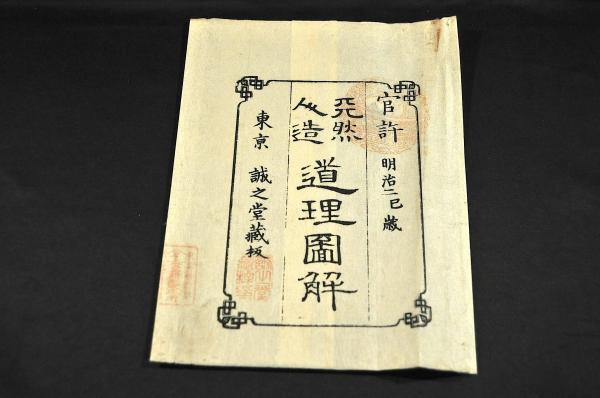 官許 明治二己巳歳
天然
人造
道理圖解
東京 誠之堂藏板